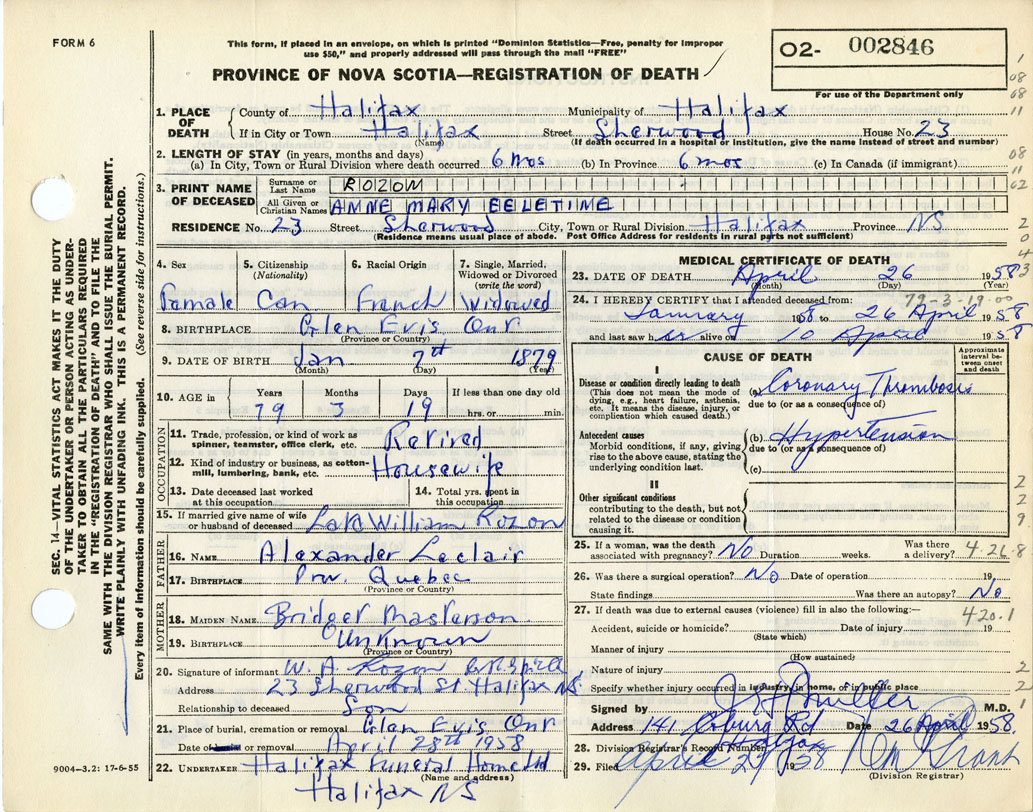 FORM 6
This form, if placed in an envelope, on which is printed "Dominion Statistics—Free, penalty for improper
use $50," and properly addressed will pass through the mail "FREE"
PROVINCE OF NOVA SCOTIA—REGISTRATION OF DEATH
O2- 002846
For use of the Department only
1. PLACE OF DEATH County of Halifax Municipality of Halifax
If in City or Town Halifax Street Sherwood House No. 23
(Name) (If death occurred in a hospital or institution, give the name instead of street and number)
2. LENGTH OF STAY (in years, months and days)
(a) In City, Town or Rural Division where death occurred 6 mos (b) In Province 6 mos (c) In Canada (if immigrant)
3. PRINT NAME OF DECEASED Surname or Last Name ROZON
All Given or Christian Names ANNE MARY
RESIDENCE No. 23 Street Sherwood City, Town or Rural Division Halifax Province NS
(Residence means usual place of abode. Post Office Address for residents in rural parts not sufficient)
4. Sex 5. Citizenship (Nationality) 6. Racial Origin 7. Single, Married, Widowed or Divorced (write the word)
Female Can French Widowed
8. BIRTHPLACE Glen Evis Ont
(Province or Country)
9. DATE OF BIRTH Jan 7th 1879
(Month) (Day) (Year)
10. AGE in Years Months Days If less than one day old
79 3 19 hrs. or min.
OCCUPATION
11. Trade, profession, or kind of work as spinner, teamster, office clerk, etc. Retired
12. Kind of industry or business, as cotton-mill, lumbering, bank, etc. Housewife
13. Date deceased last worked at this occupation 14. Total yrs. spent in this occupation
15. If married give name of wife or husband of deceased Late William Rozon
FATHER
16. NAME Alexander Leclair
17. BIRTHPLACE Prov. Quebec
(Province or Country)
MOTHER
18. MAIDEN NAME Bridget Masterson
19. BIRTHPLACE Unknown
(Province or Country)
20. Signature of informant W. A. Rozon
Address 23 Sherwood St Halifax NS
Relationship to deceased Son
21. Place of burial, cremation or removal Glen Evis Ont
Date of burial or removal April 28th 1958
22. UNDERTAKER Halifax Funeral Home Ltd
(Name and address)
Halifax NS
MEDICAL CERTIFICATE OF DEATH
23. DATE OF DEATH April 26 1958
(Month) (Day) (Year)
79-3-19-00
24. I HEREBY CERTIFY that I attended deceased from:
January 1958 to 26 April 1958
and last saw her alive on 10 April 1958
CAUSE OF DEATH
Approximate interval between onset and death
I
Disease or condition directly leading to death
(This does not mean the mode of dying, e.g., heart failure, asthenia, etc. It means the disease, injury, or complication which caused death.)
(a) Coronary Thrombosis
due to (or as a consequence of)
Antecedent causes
Morbid conditions, if any, giving rise to the above cause, stating the underlying condition last.
(b) Hypertension
due to (or as a consequence of)
(c)
II
Other significant conditions
contributing to the death, but not related to the disease or condition causing it.
25. If a woman, was the death associated with pregnancy? No Duration weeks. Was there a delivery? 4-26-8
26. Was there a surgical operation? No Date of operation 19
State findings Was there an autopsy? No
27. If death was due to external causes (violence) fill in also the following:—
420.1
Accident, suicide or homicide? Date of injury 19
(State which)
Manner of injury
(How sustained)
Nature of injury
Specify whether injury occurred in industry, in home, or in public place
Signed by M.D.
Address 141 Coburg Rd Date 26 April 1958
Halifax
28. Division Registrar's Record Number
29. Filed April 27 1958
(Division Registrar)
SEC. 14—VITAL STATISTICS ACT MAKES IT THE DUTY
OF THE UNDERTAKER OR PERSON ACTING AS UNDER-
TAKER TO OBTAIN ALL THE PARTICULARS REQUIRED
IN THE "REGISTRATION OF DEATH" AND TO FILE THE
SAME WITH THE DIVISION REGISTRAR WHO SHALL ISSUE THE BURIAL PERMIT.
WRITE PLAINLY WITH UNFADING INK. THIS IS A PERMANENT RECORD.
Every item of information should be carefully supplied. (See reverse side for instructions.)
9004-3.2: 17-6-55
1
08
08
11
08
11
02
2
0
4
3
2
2
9
2
2
1